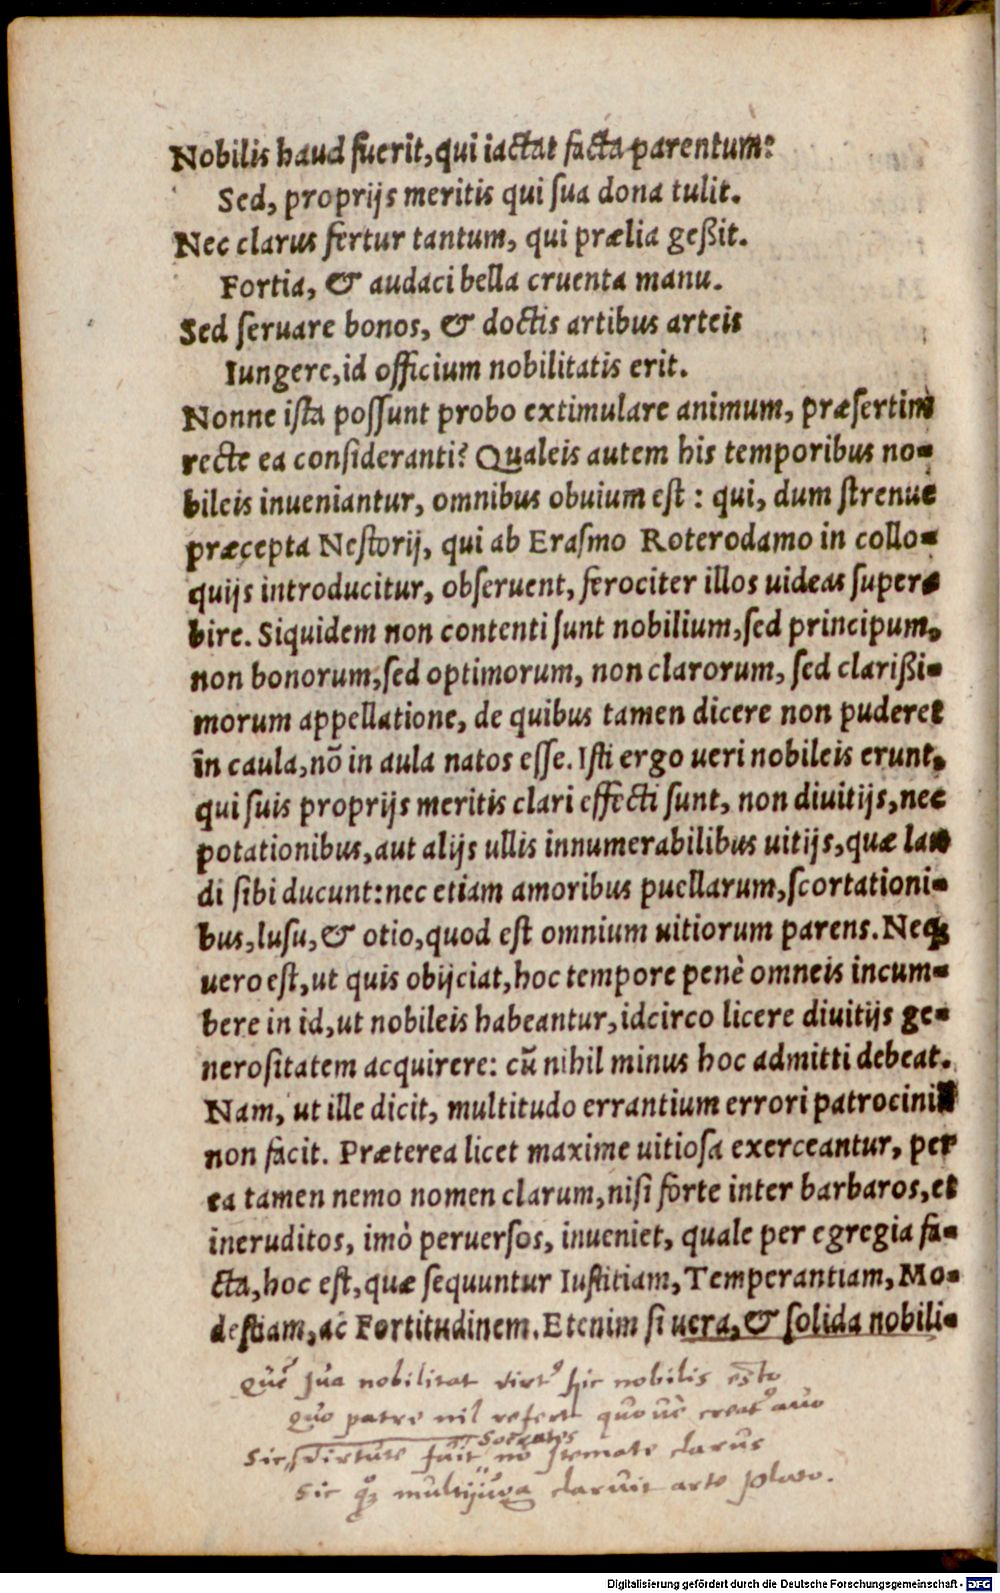 Nobilis haud fuerit, qui iactat facta parentum:
Sed, proprijs meritis qui sua dona tulit.
Nec clarus fertur tantum, qui prælia geßit.
Fortia, & audaci bella cruenta manu.
Sed seruare bonos, & doctis artibus arteis
Iungere, id officium nobilitatis erit.
Nonne ista possunt probo extimulare animum, præsertim
recte ea consideranti? Qualeis autem his temporibus no-
bileis inueniantur, omnibus obuium est : qui, dum strenue
præcepta Nestorij, qui ab Erasmo Roterodamo in collo-
quijs introducitur, obseruent, ferociter illos uideas super-
bire. Siquidem non contenti sunt nobilium, sed principum,
non bonorum, sed optimorum, non clarorum, sed clarißi-
morum appellatione, de quibus tamen dicere non puderet
in caula, nō in aula natos esse. Isti ergo ueri nobileis erunt,
qui suis proprijs meritis clari effecti sunt, non diuitijs, nec
potationibus, aut alijs ullis innumerabilibus uitijs, quæ lau
di sibi ducunt: nec etiam amoribus puellarum, scortationi-
bus, lusu, & otio, quod est omnium uitiorum parens. Neqꝫ
uero est, ut quis obijciat, hoc tempore penè omneis incum-
bere in id, ut nobileis habeantur, idcirco licere diuitijs ge-
nerositatem acquirere: cū nihil minus hoc admitti debeat.
Nam, ut ille dicit, multitudo errantium errori patrociniū
non facit. Præterea licet maxime uitiosa exerceantur, per
ea tamen nemo nomen clarum, nisi forte inter barbaros, et
ineruditos, imò peruersos, inueniet, quale per egregia fa-
cta, hoc est, quæ sequuntur Iustitiam, Temperantiam, Mo-
destiam, ac Fortitudinem. Etenim si uera, & solida nobili-
Quē sua nobilitat virtꝰ hic nobilis esto
Quo patre nil refert quo uè creatꝰ auo
Socrates
Sic virtute fuit nō stemate clarus
Sic qꝫ claruit arte plato.
Digitalisierung gefördert durch die Deutsche Forschungsgemeinschaft - DFG